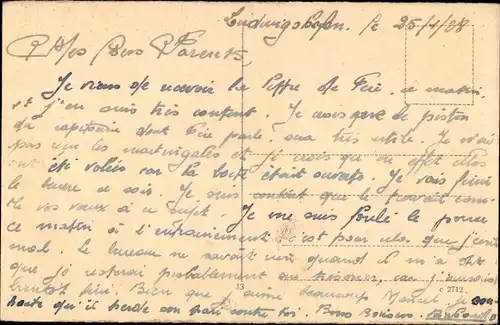 Ludwigshafen. le 25/4/28
Mes Chers Parents,
Je viens de recevoir la lettre de Féé. ce matin.
et j'en suis très content. Je que piston
du capitaine dont Féé parle sera très utile. Je n'ai
pas reçu les martingales et je crois qu'en effet elles
ont été volées car la boîte était ouverte. Je vais finir
le livre ce soir. Je suis content que le travail
de vos vœux à ce sujet. Je me suis foulé le pouce
ce matin à l'entrainement c'est pour cela que j'écris
mal. Le bureau ne savait rien quand il m'a dit
que je resterai probablement au car j'aurais
bientôt fini. Bien que j'aime beaucoup Marcel, je sou-
haite qu'il perde son pari contre toi. Bons Baisers.
13